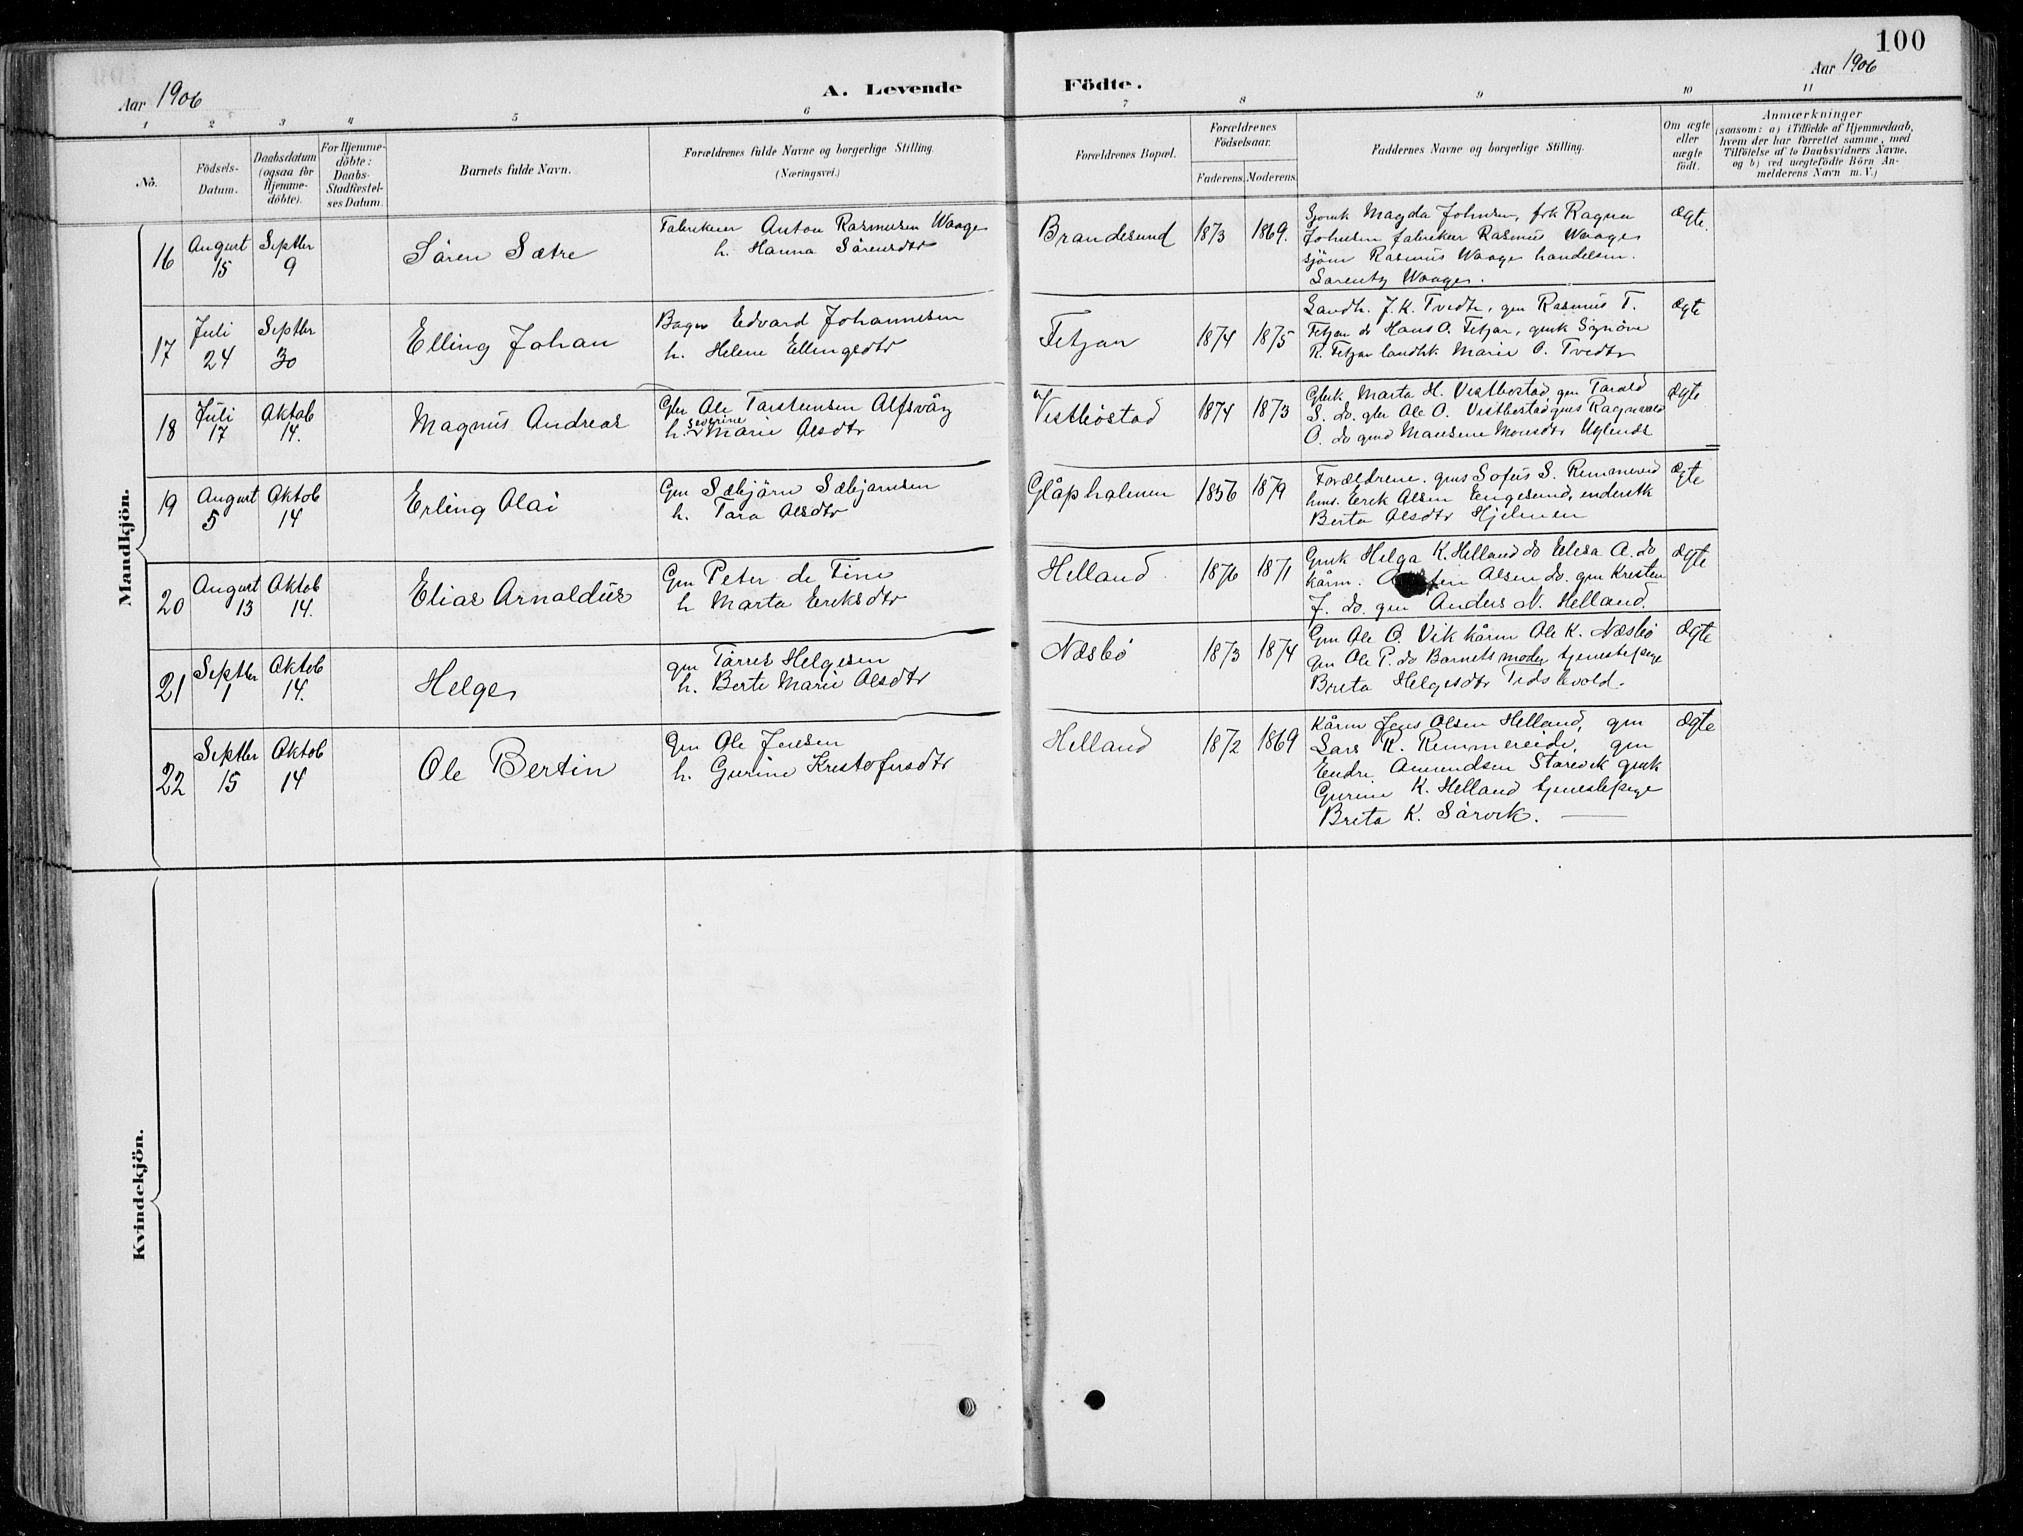 100
Aar 1906
A. Levende Födte.
Aar 1906
1 2 3 4 5 6 7 8 9 10 11
No.
Födsels-Datum.
Daabsdatum (ogsaa for Hjemmedöbte).
For Hjemmedöbte: Daabs-Stadfæstelses Datum.
Barnets fulde Navn.
Forældrenes fulde Navne og borgerlige Stilling.
(Næringsvei.)
Forældrenes Bopæl.
Forældrenes Födselsaar.
Faderens. Moderens.
Faddernes Navne og borgerlige Stilling.
Om ægte eller uægte födt.
Anmærkninger
(saasom: a) i Tilfælde af Hjemmedaab, hvem der har forrettet samme, med Tilföielse af to Daabsvidners Navne, og b) ved uægtefödte Börn Anmelderens Navn m. V.)
Mandkjön.
16 August 15 Septbr 9 Sören Sætre
Fabrikeier Anton Rasmusen Waage
h. Hanna Sörensdtr
Brandesund 1873 1869.
Sjömk Magda Johnsen, frk Ragna
Johnsen fabrikeier Rasmus Waage
sjöm Rasmus Waage handelsm.
Sarentz Waage.
ægte.
17 Juli 24 Septbr 30 Elling Johan
Bager Edvard Johannesen
h. Helene Ellingsdtr
Fitjar 1874 1875
Landh. J. K. Tvedte, gm Rasmus T.
Fitjar do Hans O. Fitjar, gmk Signöve
R. Fitjar landhk Marie O. Tvedte
ægte
18 Juli 17 Oktob 14. Magnus Andreas
Gbr Ole Torsteinsen Alfsvåg
h. Severine Marie Olsdtr
Vestböstad 1874 1873
Gbrk Marta H. Vestbostad, gm Torald
S. do. gbr Ole O. Vestbostad gms Ragnvald
O. do gmd Mansene Monsdtr
ægte
19 August 5 Oktob 14 Erling Olai
Gm Sæbjörn Sæbjörnsen
h. Tora Olsdtr
Glåpholmen 1856 1879
Forældrene. gms Sofus S. Rimmereid
hms. Erik Olsen Engesund,
Berta Olsdtr Hjelmen
ægte
20 August 13 Oktob 14. Elias Arnoldus
Gm Peter de Fine
h Marta Eriksdtr
Helland 1876 1871
Gmk Helga K. Helland do Elisa A. do
kårm. Olsen do. gm Kristen
J. do. gm Anders N. Helland.
ægte
21 Septbr 1 Oktob 14. Helge
gm Torres Helgesen
h. Berte Marie Olsdtr
Næsbö 1873 1874
Gm Ole O. Vik kårm Ole K. Næsbö
gm Ole P. do Barnets moder tjenestepige
Brita Helgesdtr Tidskvold.
ægte
22 Septbr 15 Oktob 14 Ole Bertin
Gm Ole Jensen
h. Gurine Kristofersdtr
Helland 1872 1869
Kårm Jens Olsen Helland, gm
Lars K. Rimmereide, gm
Endre Amundsen Storevik gmk
Gurine K. Helland tjenestepige
Brita K. Sörvik.
ægte
Kvindekjön.